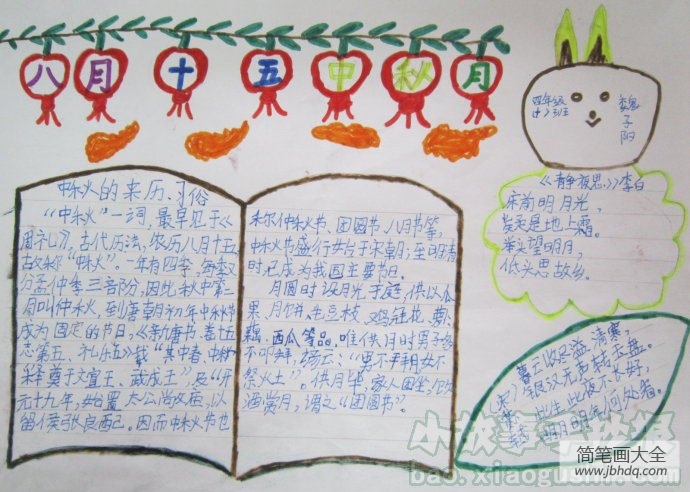 八月十五中秋月
四年级
(1)班
魏子阳
中秋的来历、习俗
“中秋”一词，最早见于《
周礼》，古代历法，农历八月十五，
故称“中秋”。一年有四季，每季又
分孟仲季三部分，因此秋中第二
月叫仲秋，到唐朝初年中秋节
成为固定的节日，《新唐书·
志第五、礼乐五》载“其中春、中秋
释奠于文宣王、武成王”，及“开
元十九年，始置太公尚父庙，以
留侯张良配”。因而中秋节也
称仲秋节、团圆节、八月节等，
中秋节盛行始于宋朝；至明清
时已成为我国主要节日。
月圆时设月光于庭，供以瓜
果、月饼、毛豆枝、鸡冠花、萝卜、
藕、西瓜等品。唯供月时男子多
不叩拜，俗云：“男不拜月女不
祭火土”。供月毕，家人团坐，饮
酒赏月，谓之“团圆节”。
《静夜思》李白
床前明月光，
疑是地上霜。
举头望明月，
低头思故乡。
暮云收尽溢清寒，
银汉无声转玉盘。
此生此夜不长好，
明月明年何处看。
小故事手抄报
bao.xiaogushi.com
简笔画大全
www.jbhdq.com